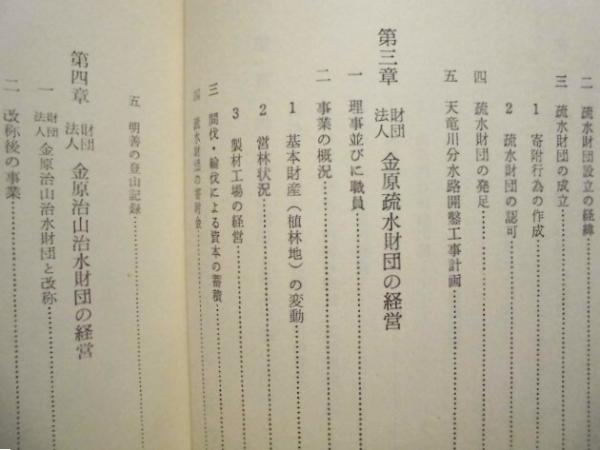 二 疏水財団設立の経緯
三 疏水財団の成立
1 寄附行為の作成
2 疏水財団の認可
四 疏水財団の発足
五 天竜川分水路開鑿工事計画
第三章 財団法人 金原疏水財団の経営
一 理事並びに職員
二 事業の概況
1 基本財産（植林地）の変動
2 営林状況
3 製材工場の経営
三 間伐・輪伐による資本の蓄積
四 疏水財団の寄附金
五 明善の登山記録
第四章 財団法人 金原治山治水財団の経営
一 財団法人 金原治山治水財団と改称
二 改称後の事業